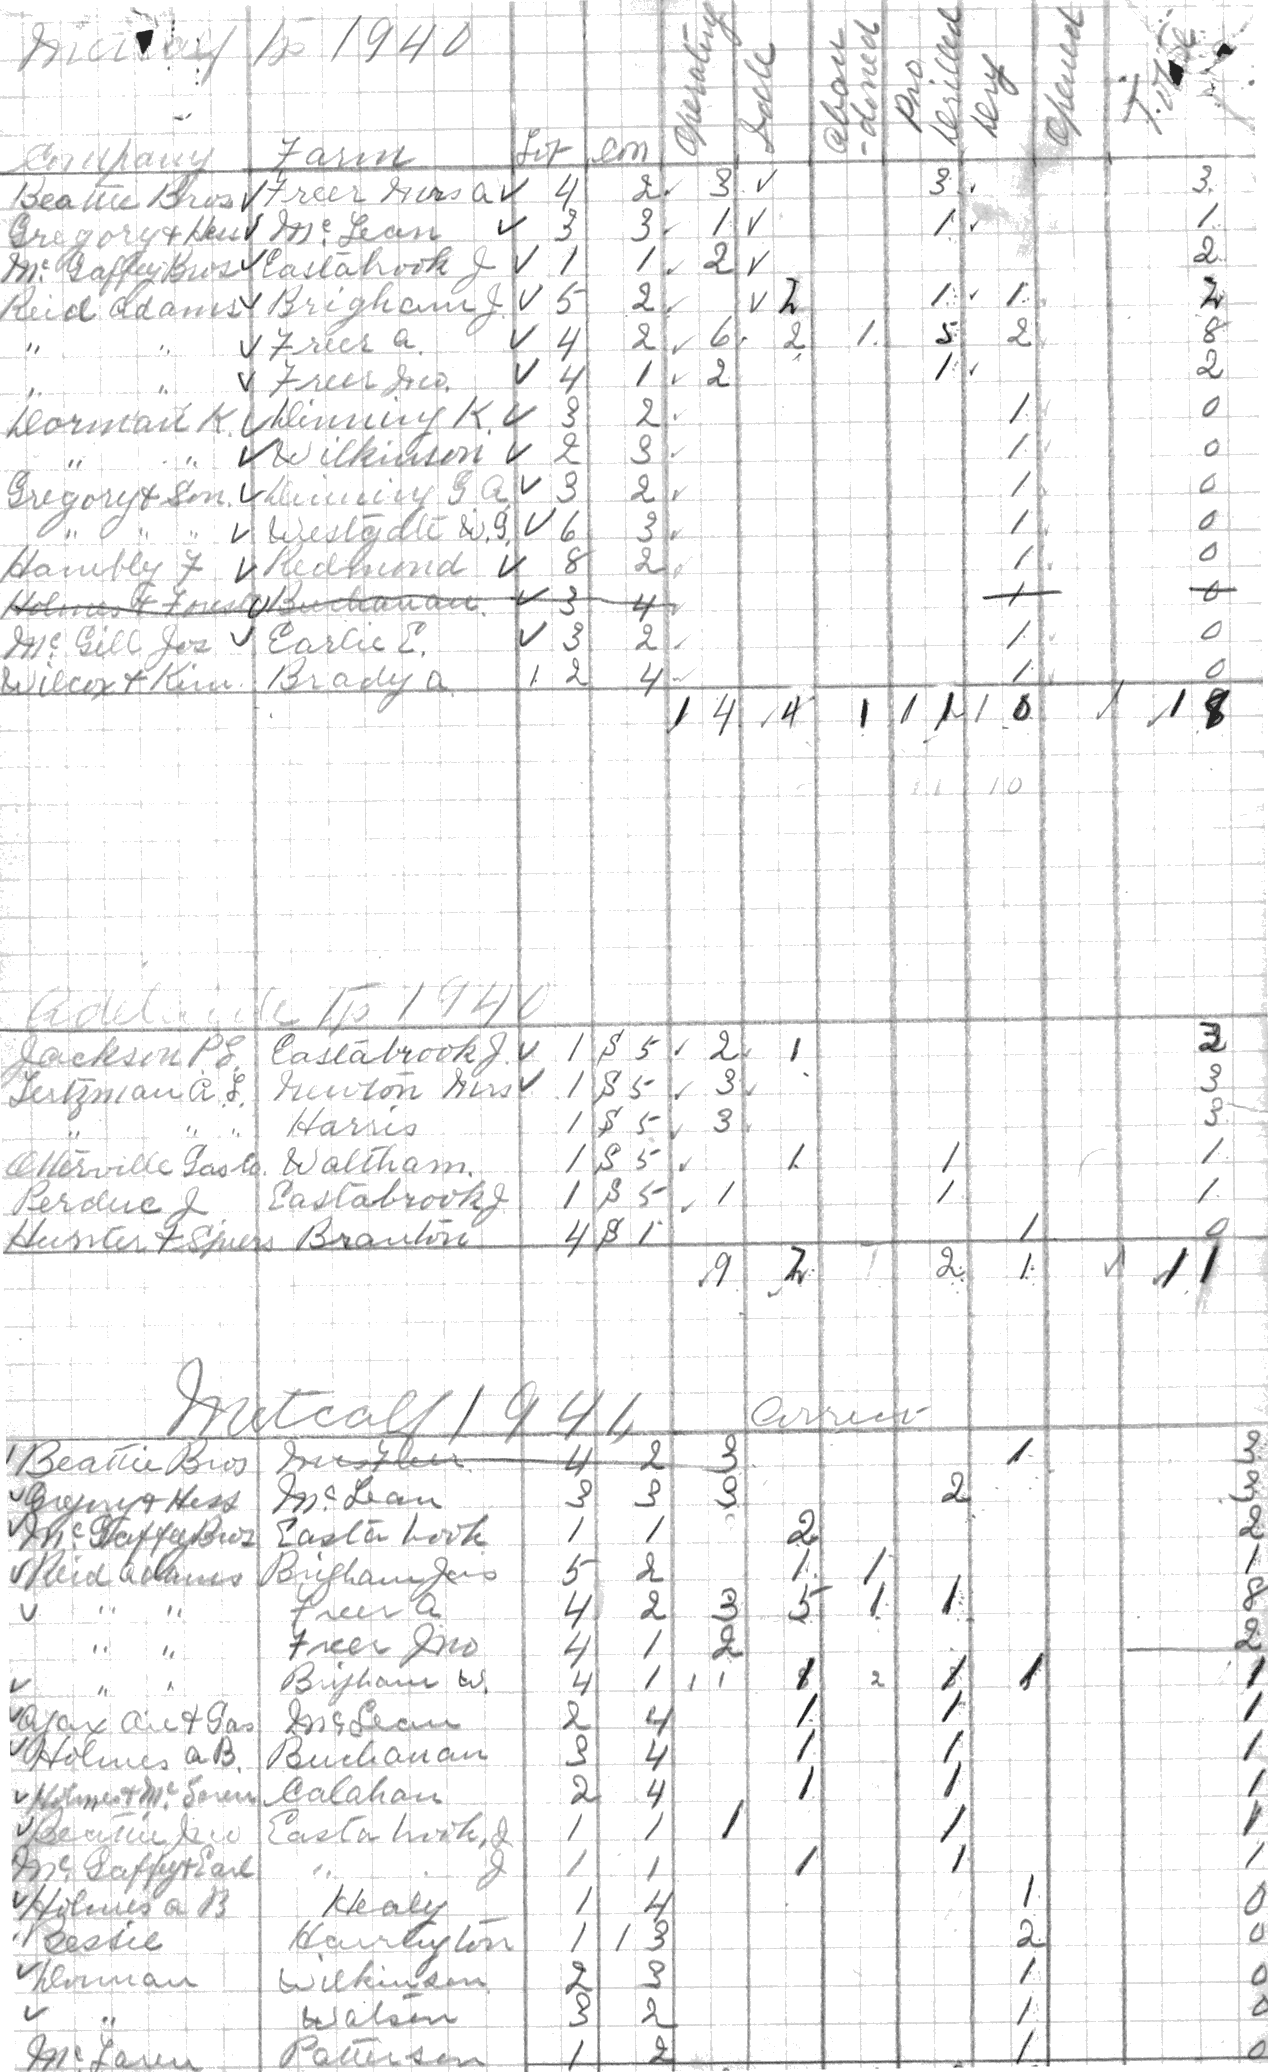 Tp 1940
Operating Idle Aban-doned Pro Drilled Dry Opened Total
Company Farm Lot Con
Beattie Bros ✓ Freer Mrs A ✓ 4 2 ✓ 3 ✓ 3 ✓ 3
Gregory & Hess ✓ McLean ✓ 3 3 ✓ 1 ✓ 1 ✓ 1
McGaffey Bros ✓ Eastabrook J ✓ 1 1 ✓ 2 ✓ 2
Reid Adams ✓ Brigham J. ✓ 5 2 ✓ ✓ 2 1 ✓ 1 2
" " ✓ Freer A. ✓ 4 2 ✓ 6 2 1 5 2 8
" " ✓ Freer Jno. ✓ 4 1 ✓ 2 1 ✓ 2
Dorman K. ✓ Dinning K. ✓ 3 2 ✓ 1 0
" " ✓ Wilkinson ✓ 2 3 ✓ 1 0
Gregory & Son. ✓ Dinning G A ✓ 3 2 ✓ 1 0
" " " ✓ Westgate W.G. ✓ 6 3 ✓ 1 0
Hambly F ✓ Redmond ✓ 8 2 ✓ 1 0
Holmes F Buchanan. ✓ 3 4 ✓ 1 0
McGill Jos ✓ Earlie E. ✓ 3 2 ✓ 1 0
Wilcox & Kim. Brady A. 2 4 ✓ 1 0
14 4 1 11 10 18
11 10
Adelaide Tp 1940
Jackson P.L. Eastabrook J. ✓ 1 S 5 ✓ 2 1 3
A.L. Newton Mrs ✓ 1 S 5 ✓ 3 3
" " " Harris 1 S 5 ✓ 3 3
Otterville Gas Co. Waltham. 1 S 5 ✓ 1 1 1
Perdue J Eastabrook J 1 S 5 ✓ 1 1 1
Hunter & Spiers Branton 4 S 1 1 0
9 2 2 1 11
Metcalf 1941 Correct
Beattie Bros Mrs Freer 4 2 3 1 3
✓ Gregory & Hess McLean 3 3 3 2 3
✓ McGaffey Bros Eastabrook 1 1 2 2
✓ Reid Adams Brigham Jas 5 2 1 1 1
✓ " " Freer A 4 2 3 5 1 1 8
" " Freer Jno 4 1 2 2
✓ " " Brigham W. 4 1 11 1 2 1 1 1
✓ Ajax Oil & Gas McLean 2 4 1 1 1
✓ Holmes A B. Buchanan 3 4 1 1 1
✓ Holmes & McLaren Calahan 2 4 1 1 1
✓ Beattie Jno Eastabrook, J 1 1 1 1 1
McGaffey & Earl " J 1 1 1 1 1
✓ Holmes A B Healy 1 4 1 0
Bessie Harrington 1 13 2 0
✓ Dorman Wilkinson 2 3 1 0
✓ " Watson 3 2 1 0
McLaren Patterson 1 2 1 0